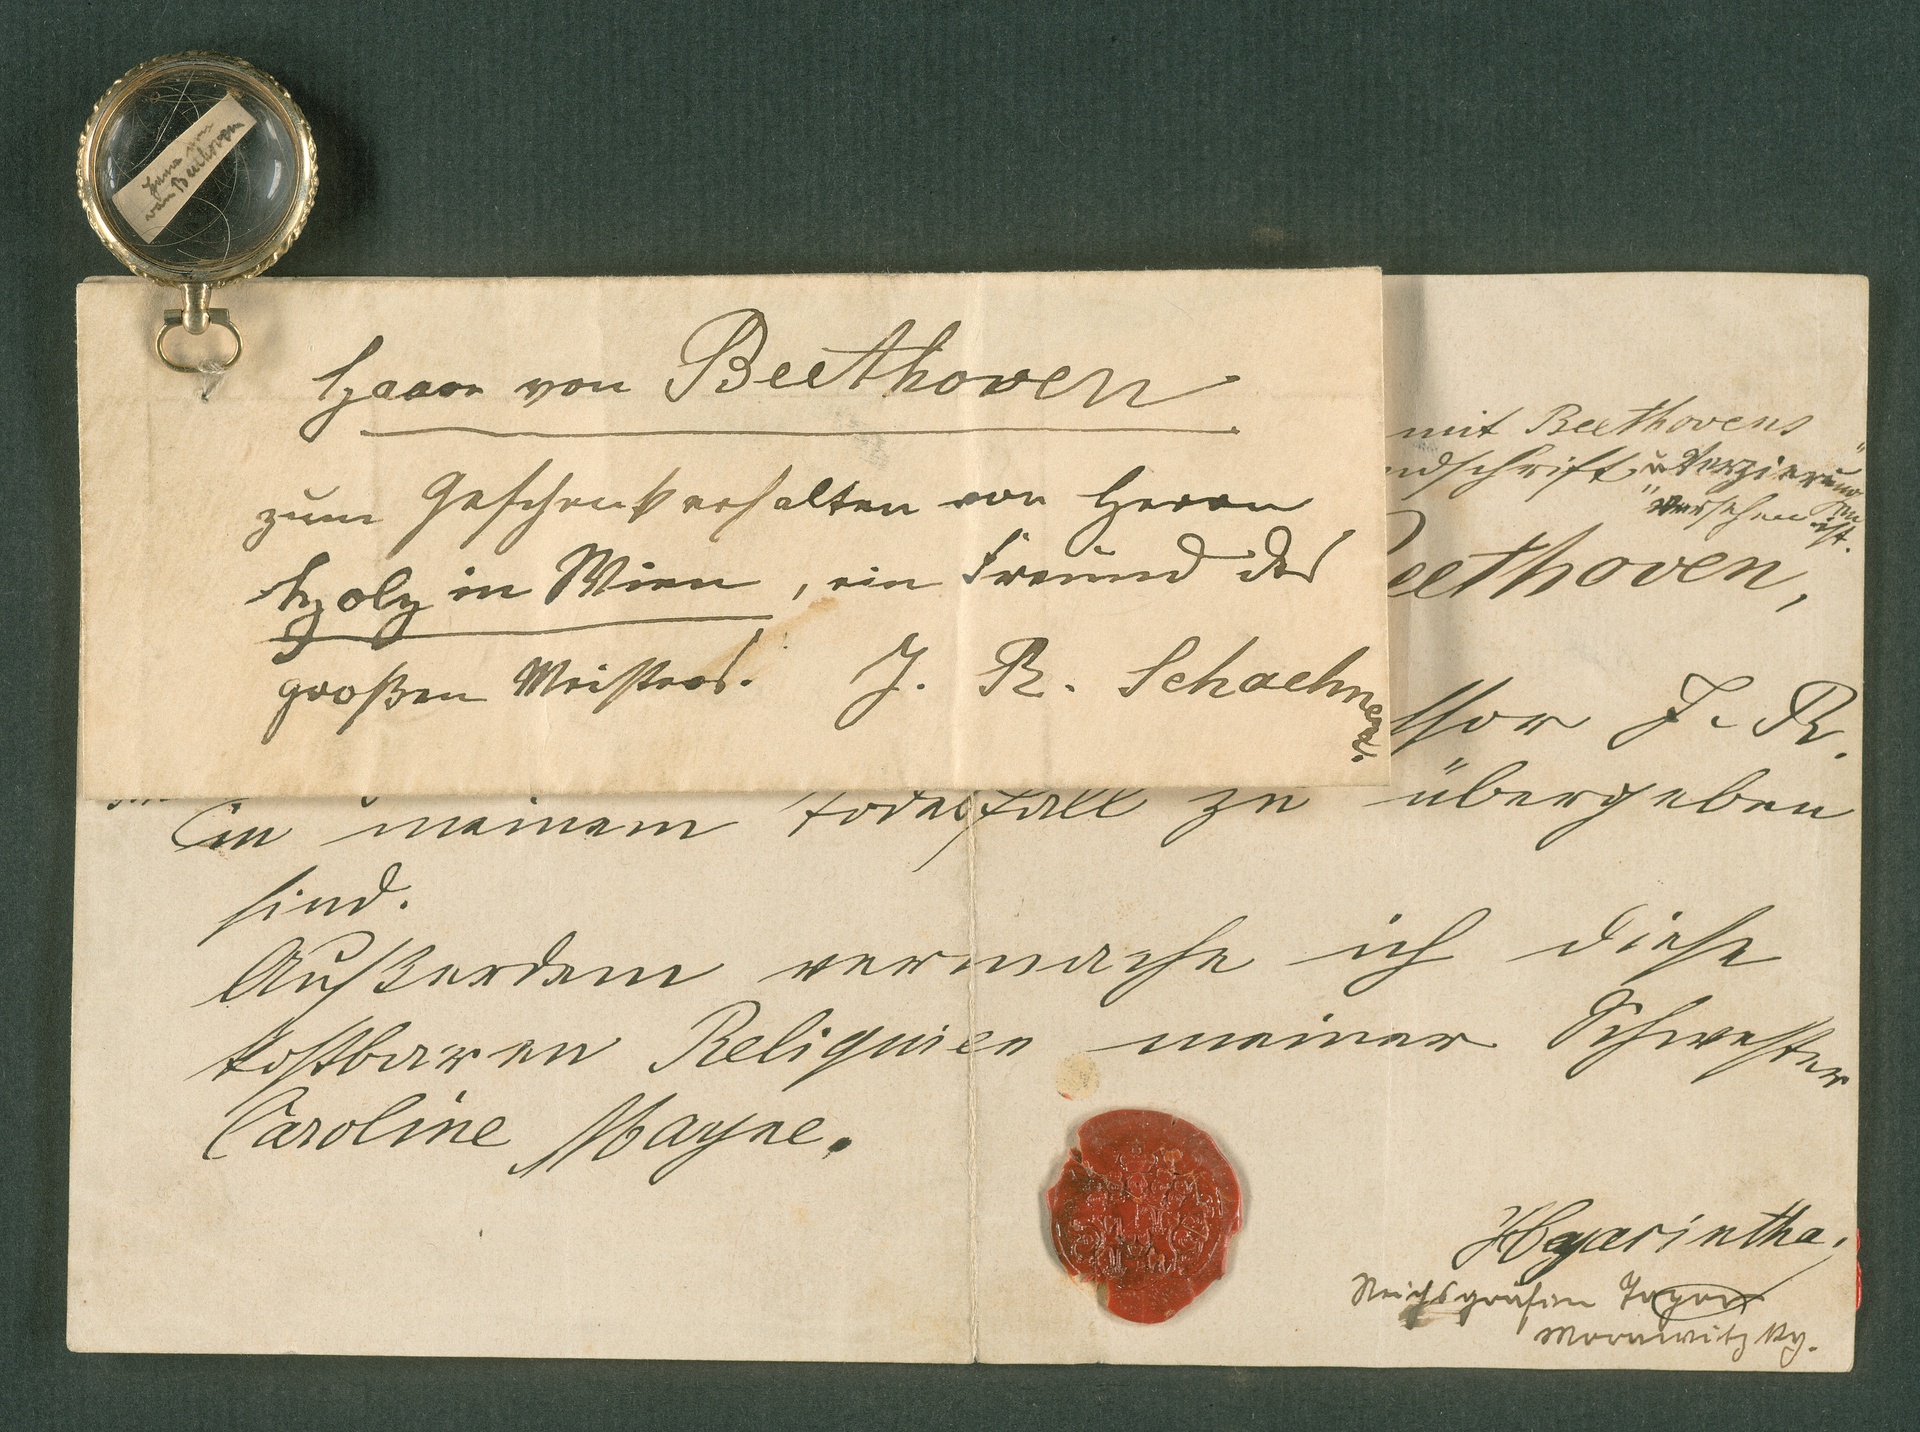 Haare von
van Beethoven
Haare von Beethoven
zum Geschenk erhalten von Herrn
Holz in Wien, ein Freund des
großen Meisters. J. R. Schachner.
mit Beethovens
ndschrift u. Verzierung
versehen ist.
eethoven,
ssor J. R.
in meinem Todesfall zu übergeben
sind.
Außerdem vermache ich diese
kostbaren Reliquien meiner Schwester
Caroline Mayne.
Hyacintha,
Reichsgräfin
Morawitzky.